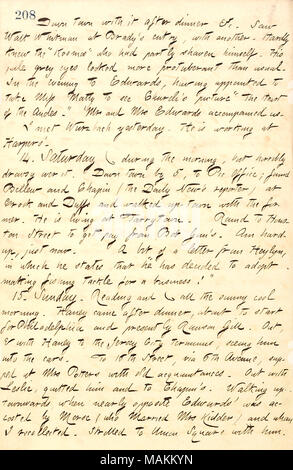 208
Down town with it after dinner &c. Saw
Walt Whitman at Brady's entry, with another. Hardly
knew the "Kosmos" who had partly shaven himself. His
pale grey eyes looked more protuberant than usual.
In the evening to Edwards, having appointed to
take Miss Matty to see Church's picture "the Heart
of the Andes." Mr and Mrs Edwards accompanied us.
I met Wurzbach yesterday. He is working at
Harpers.
14. Saturday. during the morning, but horribly
drowsy over it. Down town by 5, to Pic Office; found
Bellew and Chapin (the Daily News's reporter) at
Crook and Duffs and walked up-town with the for-
mer. He is living at Tarrytown. Round to Hous-
ton Street to get pay from Am hard-
up, just now. A lot of a letter from Heylyn,
in which he states that he has decided to adopt
making fishing tackle for a business!
15. Sunday. Reading and all the sunny cool
morning. Haney came after dinner, about to start
for Philadelphia and presently Ransom Gill. Out
with Haney to the Jersey City terminus, seeing him
into the cars. To 16th Street, via 6th Avenue, sup-
ped at Mrs Potters with old acquaintances. Out with
Leslie, quitted him and to Chapin's. Walking up-
townwards when nearly opposite Edwards' was ac-
costed by Morse (who married Mrs Kidder) and whom
I recollected. Strolled to Union Square with him.
alamy
MAKKYN